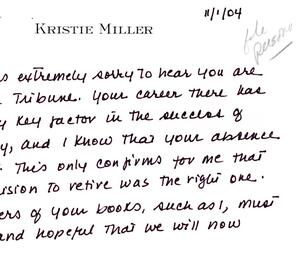 11/1/04
KRISTIE MILLER
file
personal
s extremely sorry to hear you are
Tribune. Your career there has
key factor in the success of
y, and I know that your absence
This only confirms for me that
ision to retire was the right one.
ers of your books, such as I, must
and hopeful that we will now